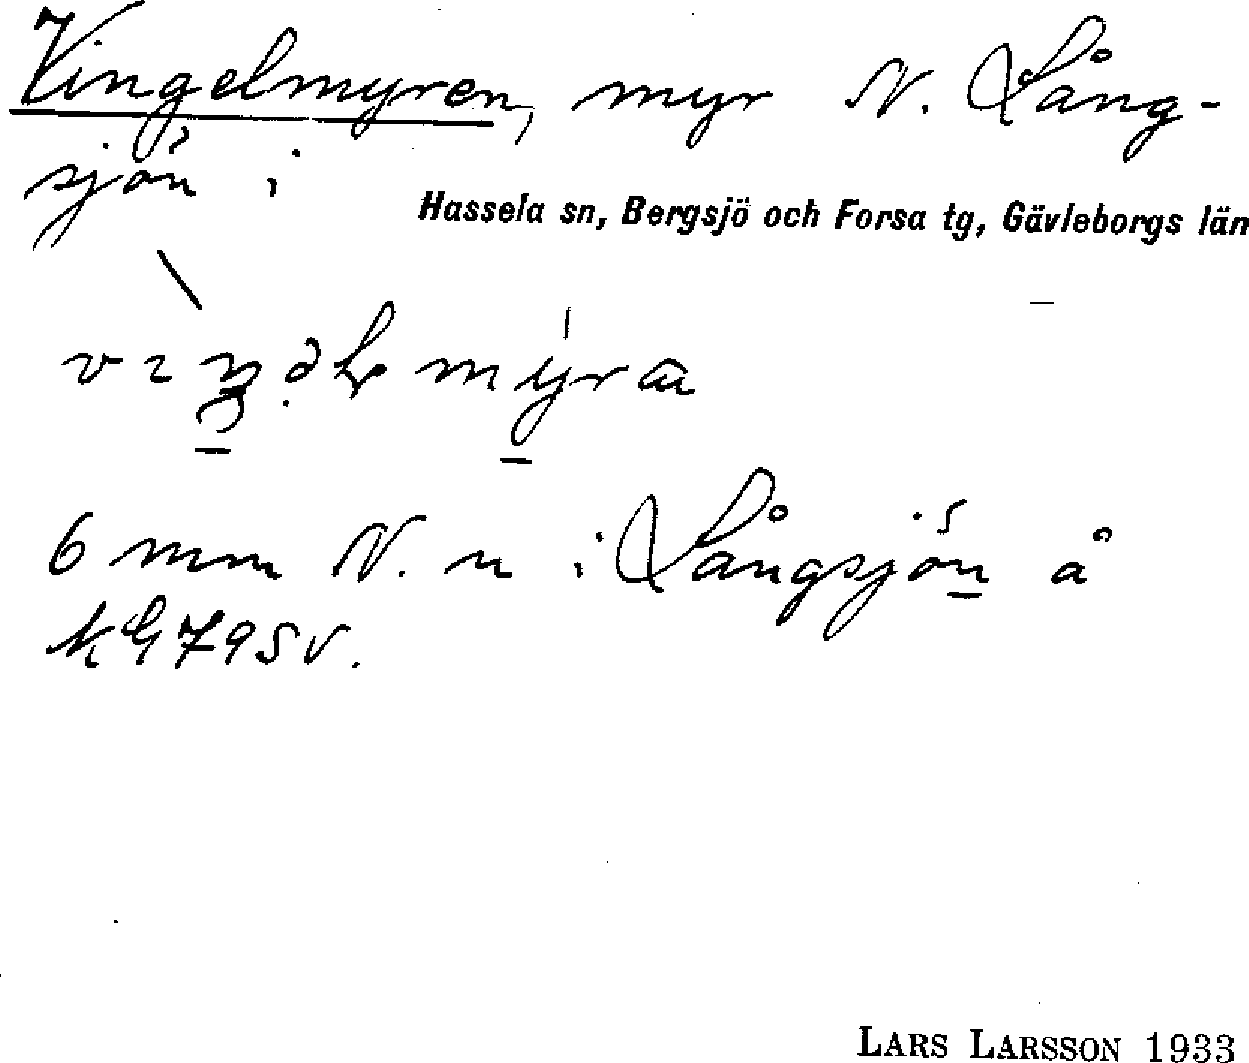 Vingelmyren, myr N. Lång-
sjön i
Hassela sn, Bergsjö och Forsa tg, Gävleborgs län
6 mm N. n i Långsjön å
kG795V.
LARS LARSSON 1933